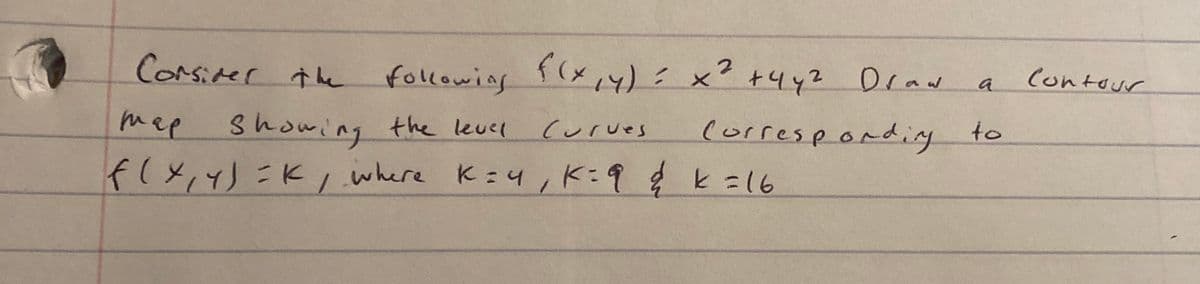 Consider the following f(x,y) = x² + 4y² Draw a Contour
map showing the level Curves Corresponding to
f(x,y) = K, where K=4, K=9 & k=16